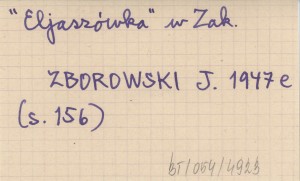 "Eljaszówka" w Zak.
ZBOROWSKI J. 1947 e
(s. 156)
5T/054/4925